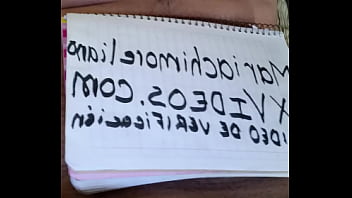 Mariachimoreliano
XVIDEOS.COM
IDEO DE VERIFICACIÓN